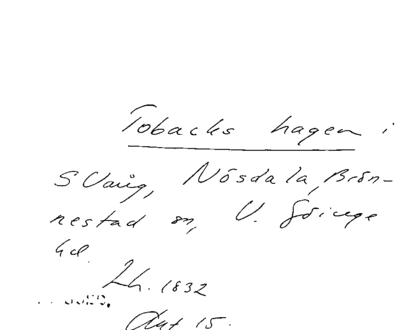 Tobacks hagen i
S Vång, Nösdala, Brön-
nestad sn, V. Göinge
hd.
Lh. 1832
Akt 15.